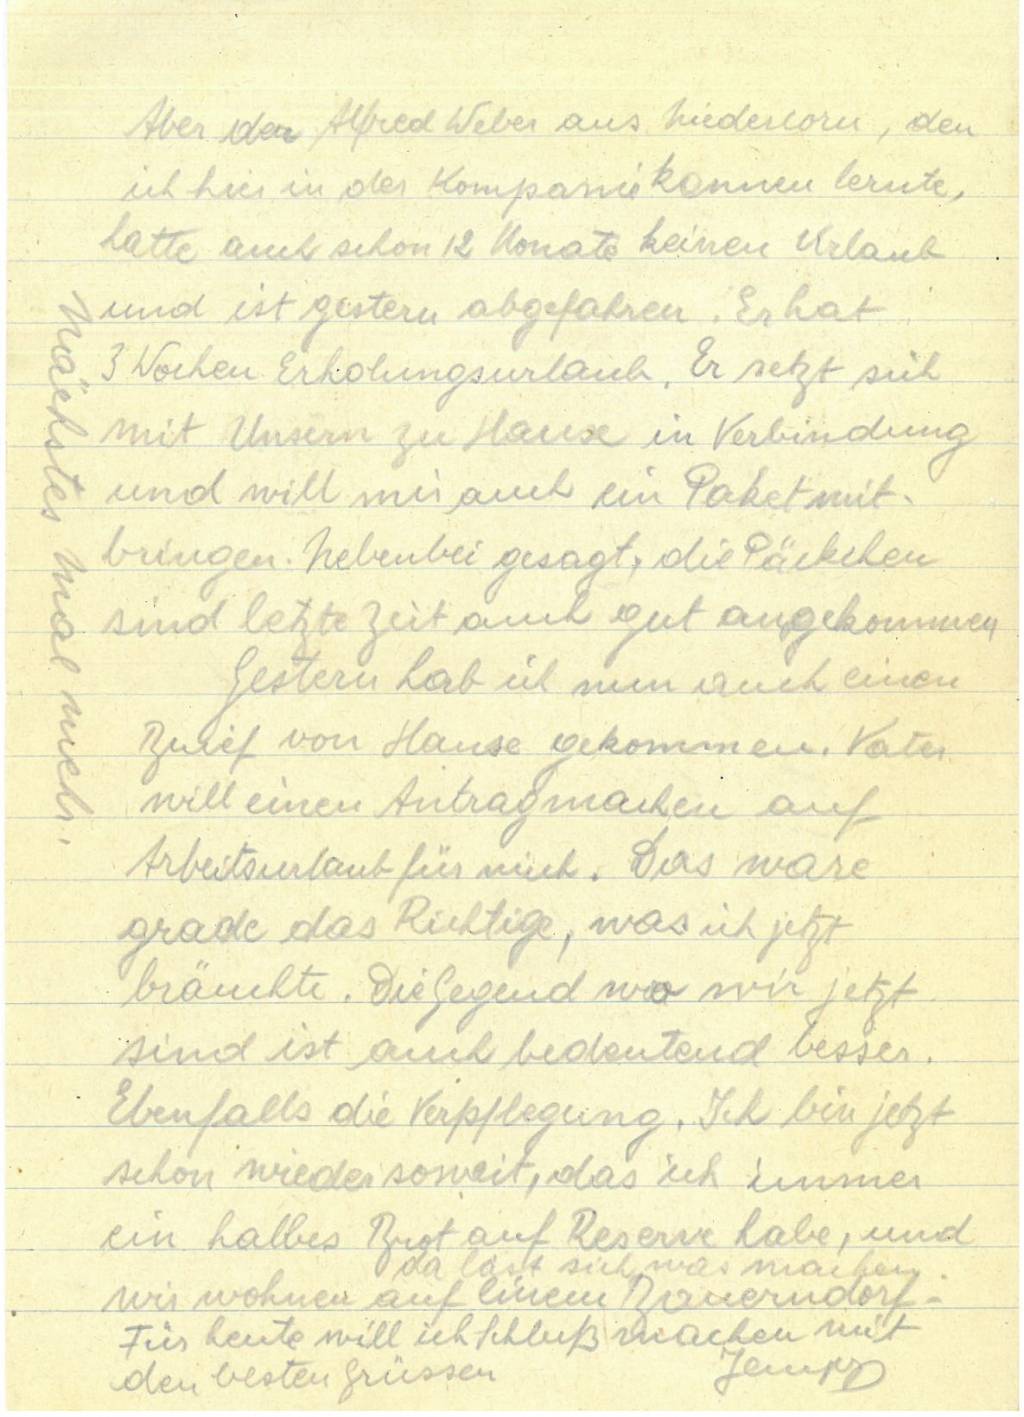 Aber der Alfred Weber aus Niederkorn, den
ich hier in der Kompanie kennen lernte,
hatte auch schon 12 Monate keinen Urlaub
und ist gestern abgefahren. Er hat
3 Wochen Erholungsurlaub. Er setzt sich
mit Unsern zu Hause in Verbindung
und will mir auch ein Paket mit-
bringen. Nebenbei gesagt, die Päckchen
sind letzte Zeit auch gut angekommen
Gestern hab ich nun auch einen
Brief von Hause gekommen. Vater
will einen Antrag machen auf
Arbeitsurlaub für mich. Das wäre
grade das Richtige, was ich jetzt
bräuchte. Die Gegend wo wir jetzt
sind ist auch bedeutend besser.
Ebenfalls die Verpflegung. Ich bin jetzt
schon wieder soweit, das ich immer
ein halbes Brot auf Reserve habe, und
da läst sich was machen.
wir wohnen auf einem Bauerndorf.
Für heute will ich Schluß machen mit
den besten Grüssen Jempy
Nächstes mal mehr.